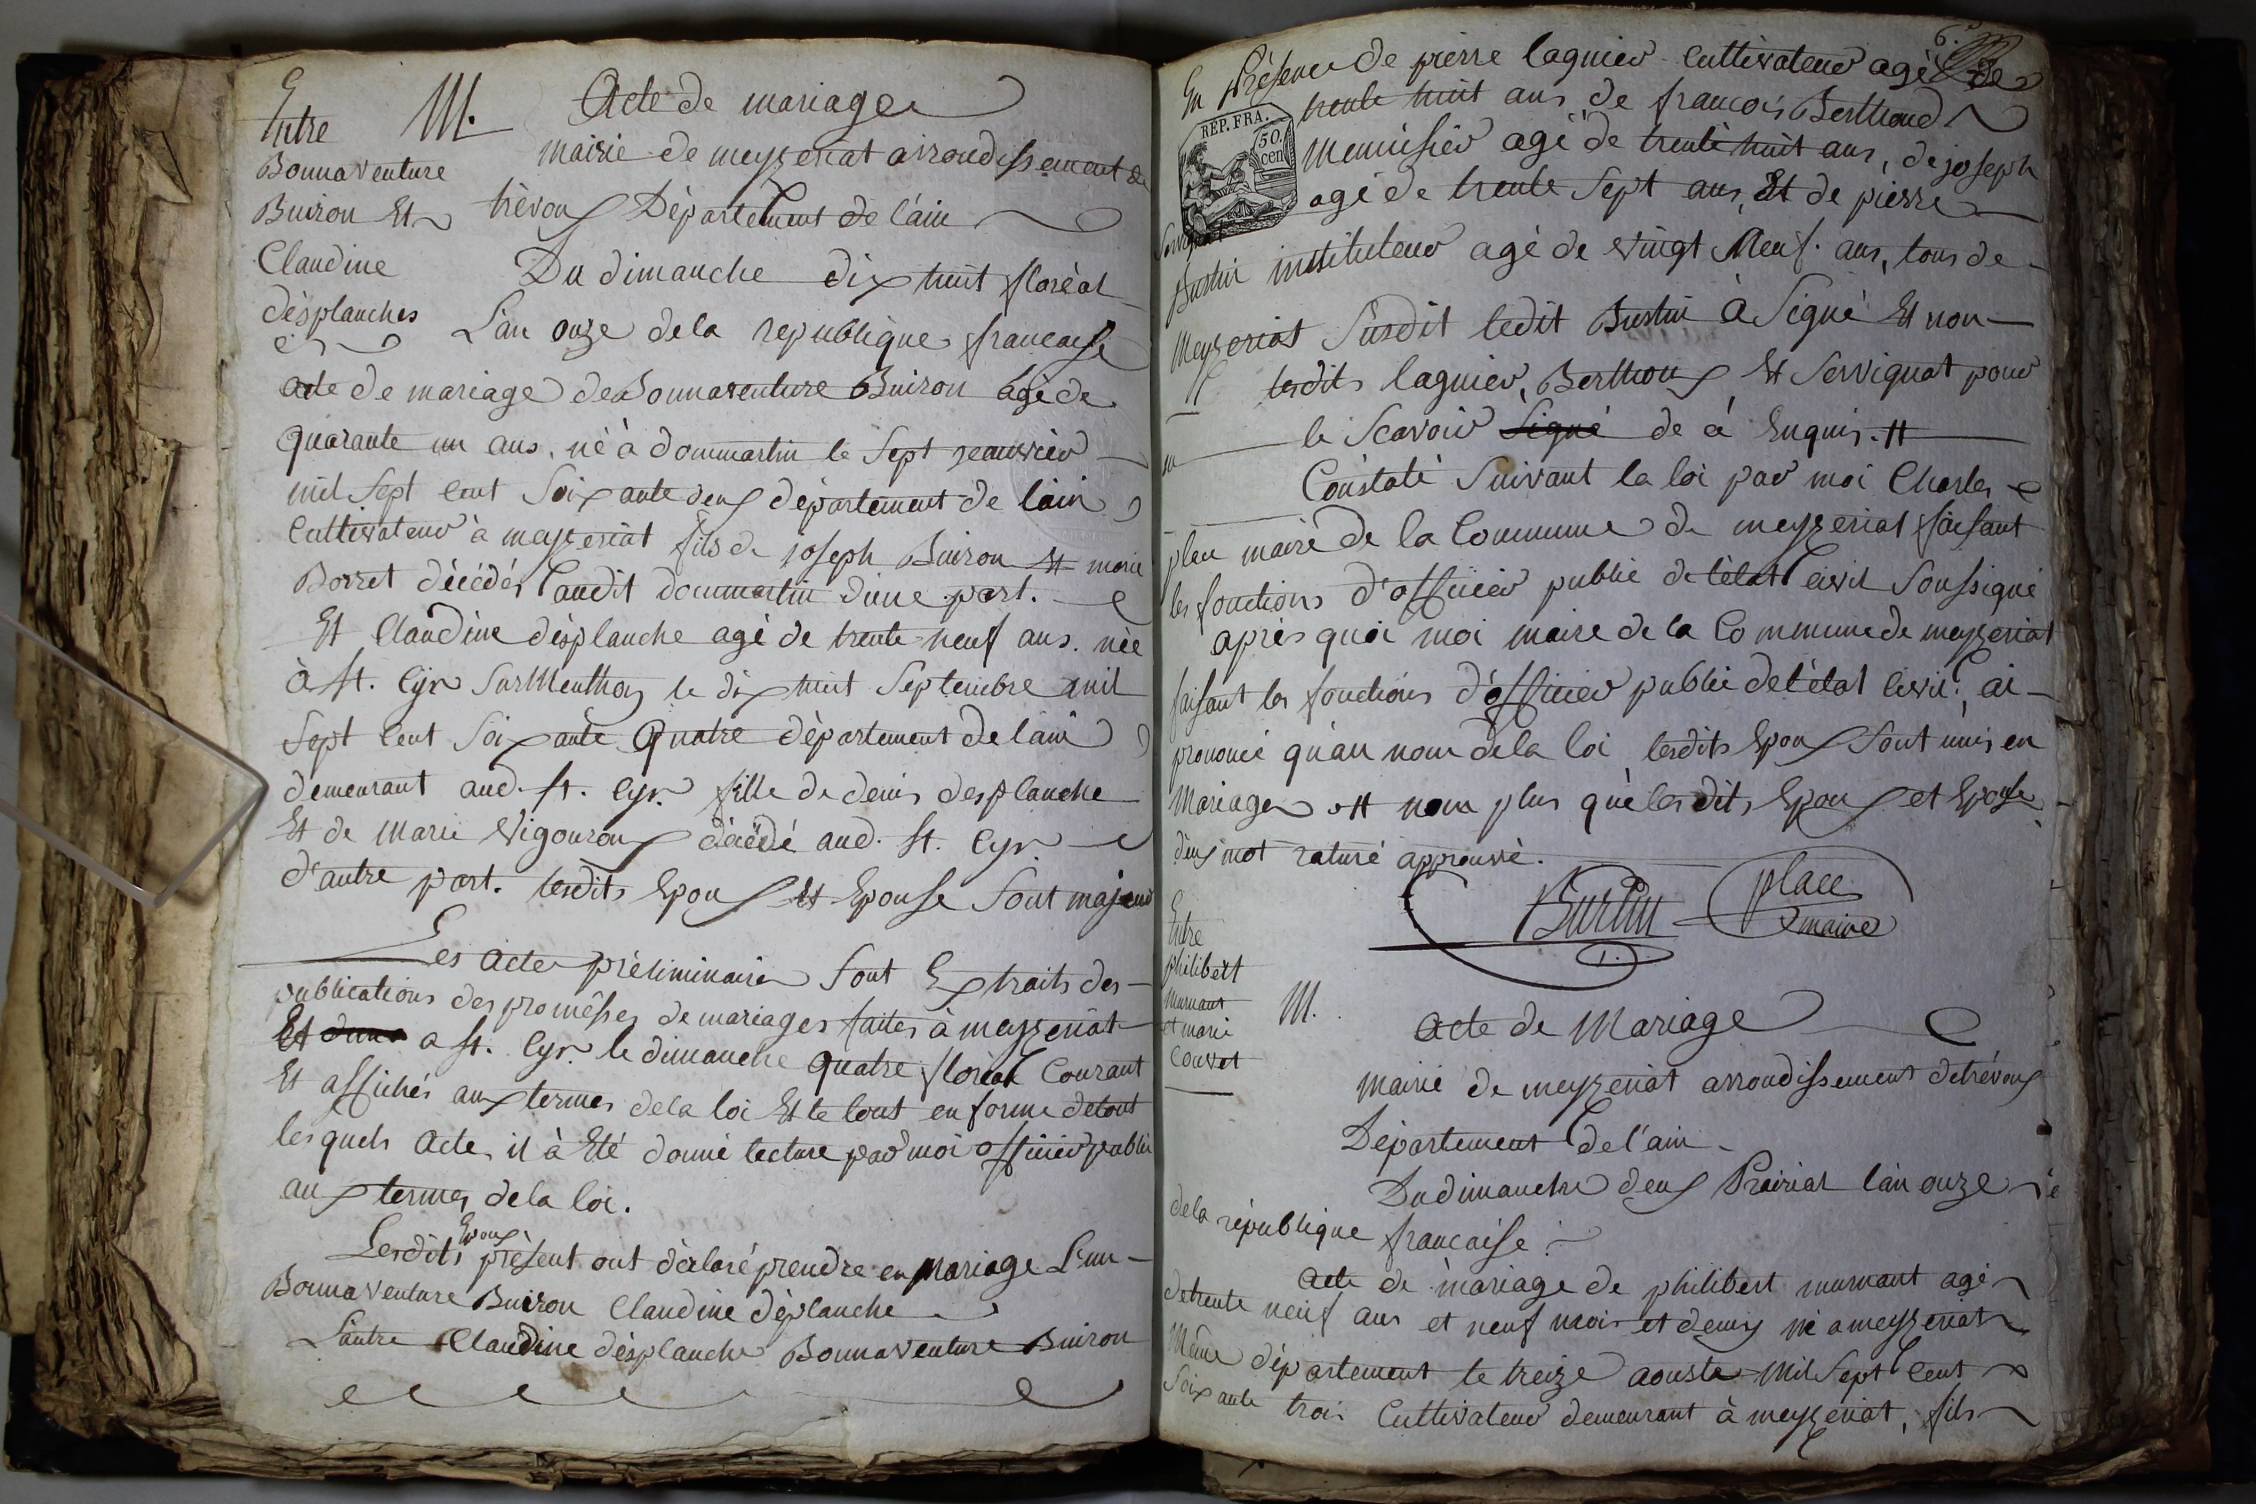 Entre
Bonnaventure
Buiron Et
Claudine
désplanches
M.
Acte de mariage
mairie de meyzeriat arrondissement de
trévoux Département de l'ain
Du dimanche dix huit floréal
L'an onze dela republique francaise
acte de mariage de Bonnaventure Buiron agé de
quarante un ans, né à dommartin le sept jeanvier
mil sept cent soixante deux département de lain
Cultivateur à meyzeriat fils de joseph Buiron Et marie
Borret décédés audit dommartin dune part.
Et Claudine désplanche agé de trente neuf ans. née
à st. Cyr sur Menthon le dix huit Septembre mil
sept cent soixante quatre département de lain
demeurant aud. st. Cyr. fille de denis desplanche
Et de Marie Vigouroux décédé aud. st. Cyr
d'autre part. lesdits Epoux Et Epouse sont majeur
Les acte préliminaire sont Extraits des
publications des promésses de mariages faites à meyzeriat
Et a st. Cyr. le dimanche quatre floréal Courant
Et affichés aux termes dela loi Et le tout en forme detout
lesquels acte, il à Eté donné lecture par moi officier public
aux termes dela loi.
Lesdits Epoux présent ont déclaré prendre en Mariage L'un
Bonnaventure Buiron Claudine déplanche
L'autre Claudine désplanche Bonnaventure Buiron
6.
En Présence de pierre lagnier cultivateur agé de
trente huit ans, de francois Berthoud
REP. FRA.
50.
cen
Menuisier agé de trente huit ans, de joseph
Servignat
agé de trente sept ans, Et de pierre
Burtin instituteur agé de vingt Neuf ans, tous de
Meyzeriat susdit ledit Burtin à Signé Et non
lesdits lagnier, Berthoux Et Servignat pour
le Scavoir Signé de cé Enquis. #
Constaté suivant la loi par moi Charles
place maire de la Commune de meyzeriat faisant
les fonctions d'officier public de létat Civil soussigné
après quoi moi maire de la Commune de meyzeriat
faisant les fonctions d'officier public de l'état Civil, ai
prononcé qu'au nom dela loi lesdits Epoux sont unis en
Mariage # non plus que lesdits Epoux et Epouse
deux mot raturé approuvé.
Burtin place
maire
Entre
philibert
murnant
et marie
Couvet
M.
acte de Mariage
Mairie de meyzeriat arrondissement detrévoux
Département de l'ain
Du dimanche deux Prairial l'an onze
dela république francaise
acte de mariage de philibert murnant agé
detrente neuf ans et neuf mois et demy né a meyzeriat
Même département le treize aouste Mil Sept Cent
Soixante trois Cultivateur demeurant à meyzeriat, fils